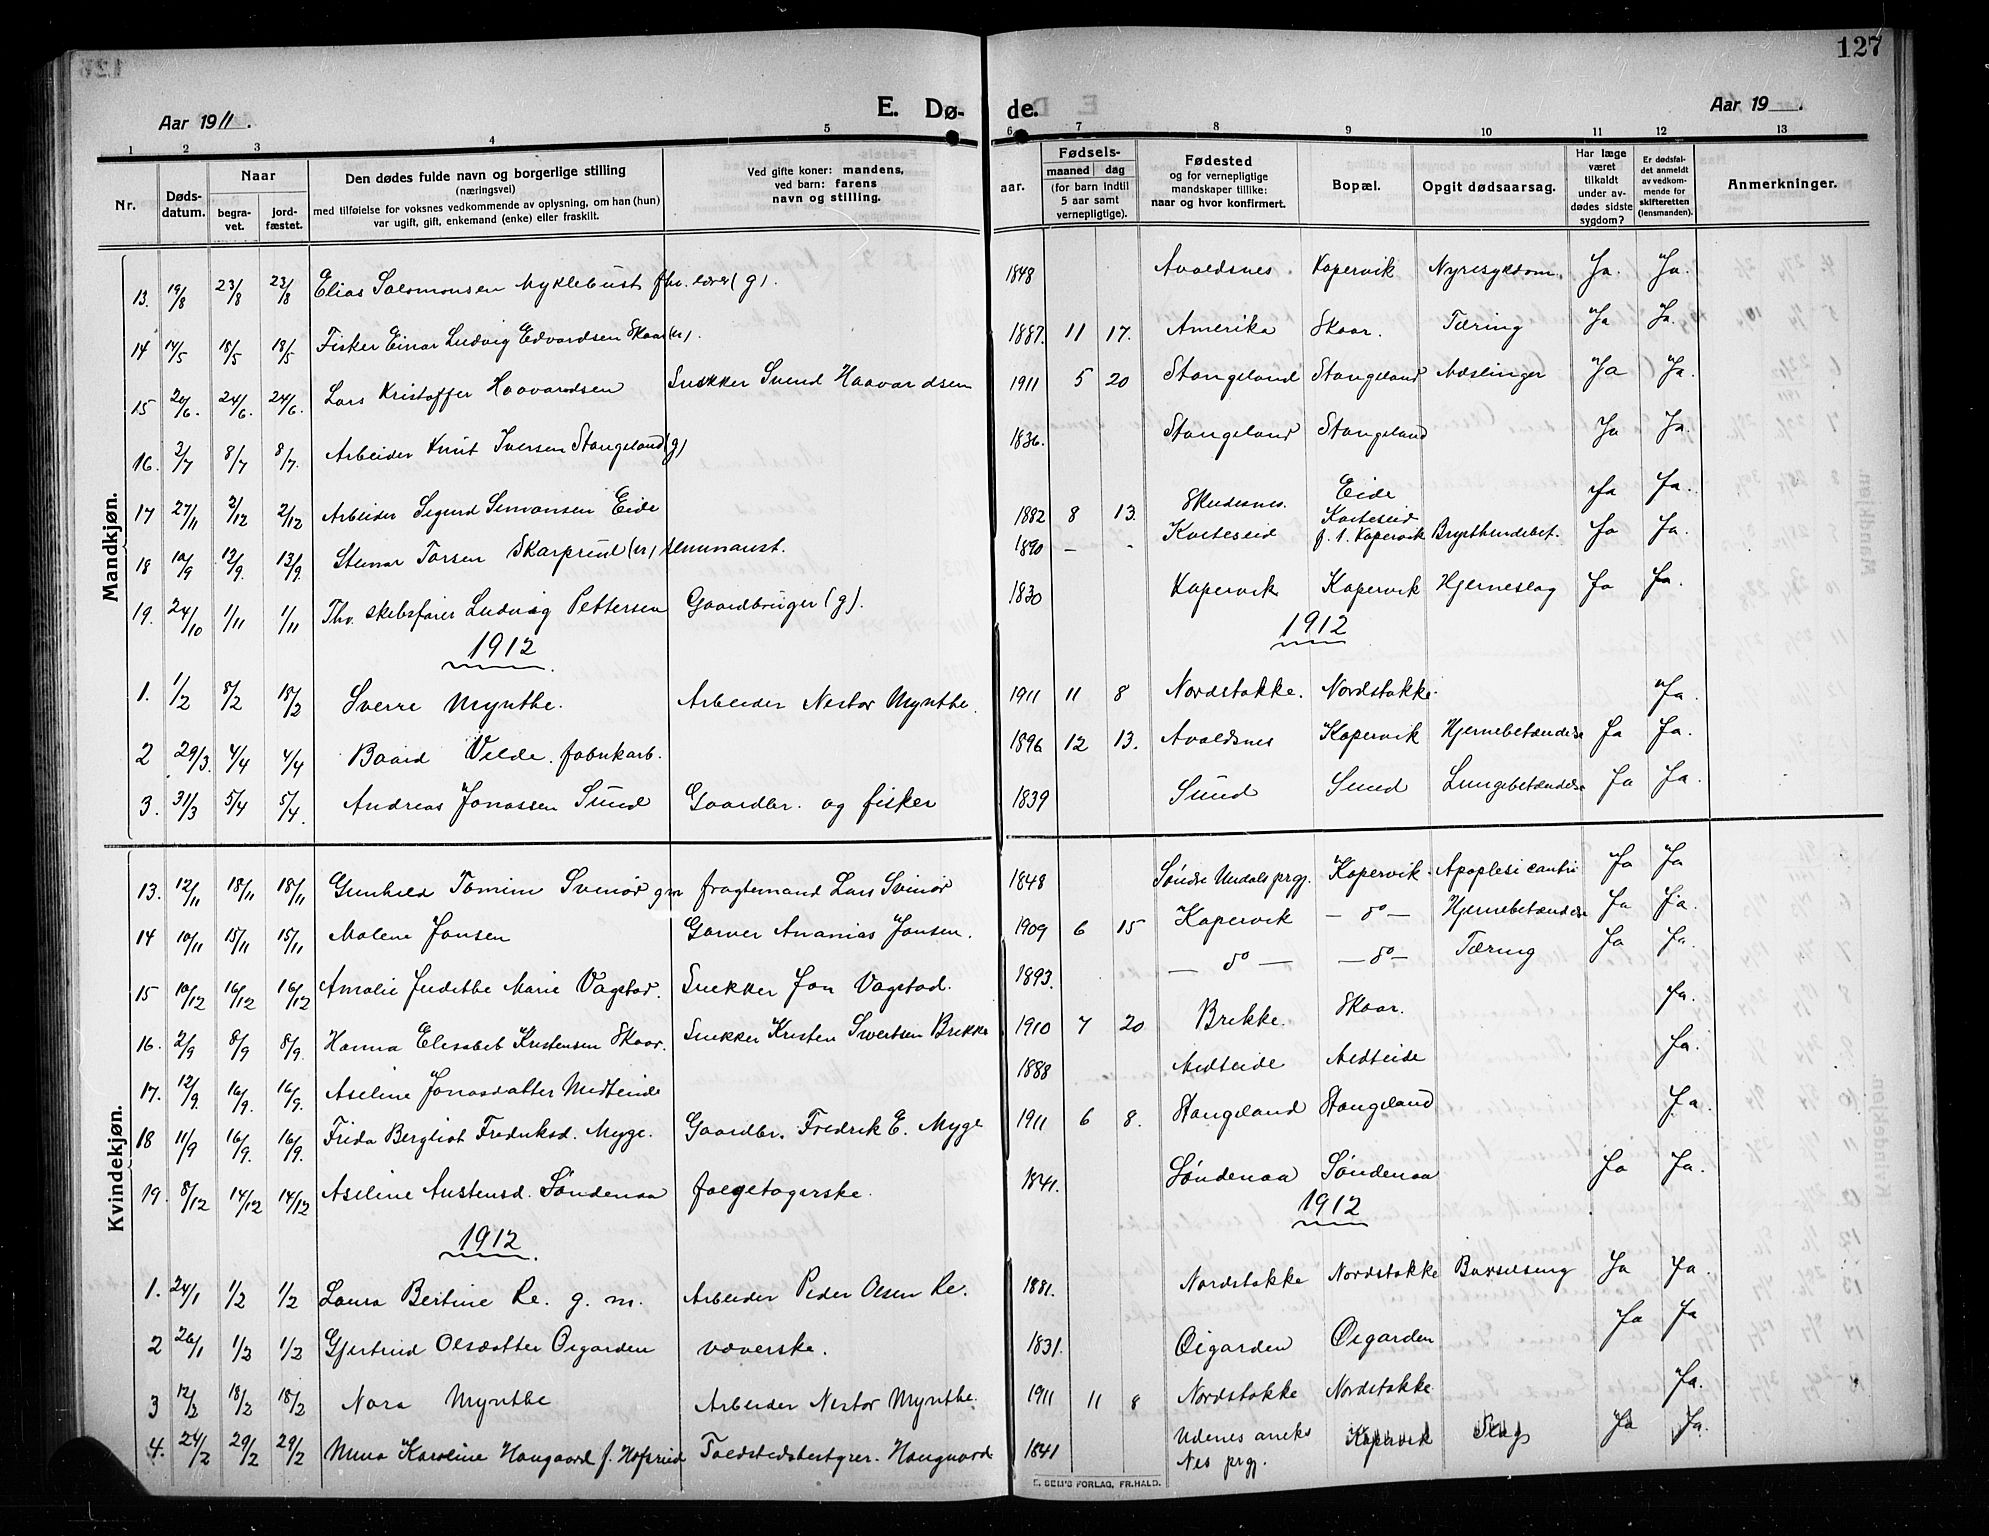 127
Aar 1911.
E. Dø-
de.
Aar 19
1 2 3 4 5 6 7 8 9 10 11 12 13
Nr.
Døds-
datum.
Naar
begra-
vet.
jord-
fæstet.
Den dødes fulde navn og borgerlige stilling
(næringsvei)
med tilføielse for voksnes vedkommende av oplysning, om han (hun)
var ugift, gift, enkemand (enke) eller fraskilt.
Ved gifte koner: mandens,
ved barn: farens
navn og stilling.
Fødsels-
aar.
maaned
dag
(for barn indtil
5 aar samt
vernepligtige).
Fødested
og for vernepligtige
mandskaper tillike:
naar og hvor konfirmert.
Bopæl.
Opgit dødsaarsag.
Har læge
været
tilkaldt
under av-
dødes sidste
sygdom?
Er dødsfal-
det anmeldt
av vedkom-
mende for
skifteretten
(lensmanden).
Anmerkninger.
Mandkjøn.
13. 19/8 23/8 23/8 Elias Salomonsen Myklebust fhv. lærer (g). 1848 Avaldsnes Kopervik Nyresykdom. Ja. Ja.
14 14/5 18/5 18/5 Fisker Einar Ludvig Edvardsen Skaar (u). 1887. 11 17. Amerika Skaar. Tæring Ja Ja.
15 20/6. 24/6. 24/6. Lars Kristoffer Haavardsen Snekker Svend Haavardsen 1911 5 20 Stangeland Stangeland Næslinger Ja Ja.
16. 2/7 8/7 8/7. Arbeider Knut Iversen Stangeland (g) 1836. Stangeland Stangeland Ja Ja.
17 27/11 2/12 2/12 Arbeider Sigurd Simonsen Eide 1882 8 13. Skudesnes. Eide Ja Ja.
18 10/9 13/9. 13/9. Steinar Tarsen Skarprud (u) seminarist. 1890 — - Kviteseid Kviteseid f. t. Kopervik Brysthindebet. Ja Ja.
19. 24/10 1/11 1/11 Fhv. skibsfører Ludvig Pettersen Gaardbruger (g). 1830 Kopervik Kopervik Hjerneslag Ja Ja.
1912 1912
1. 1/2 8/2 18/2 Sverre Mynthe. Arbeider Nestor Mynthe. 1911 11 8 Nordstokke. Nordstokke. Ja.
2 29/3. 4/4 4/4 Baard Velde. fabrikarb. 1896 12 13. Avaldsnes Kopervik Hjernebetændelse Ja Ja.
3. 31/3 5/4 5/4. Andreas Jonassen Sund Gaardbr. og fisker 1839 Sund Sund Lungebetændelse Ja Ja.
Kvindekjøn.
13. 12/11 18/11 18/11 Gunhild Tomine Svinør g m fragtemand Lars Svinør 1848 Søndre Undals prgj. Kopervik. Apoplesi cantri Ja Ja
14 10/11 15/11 15/11 Malene Jansen Garver Ananias Jansen. 1909 6 15 Kopervik — do — Hjernebetændelse Ja Ja.
15 10/12 16/12 16/12 Amalie Judithe Marie Vagstad. Snekker Jon Vagstad. 1893. — do — — do — Tæring Ja Ja.
16. 2/9 8/9 8/9. Hanna Elisabet Kristensen Skaar. Snekker Kristen Swertsen Brekke 1910 7 20 Brekke. Skaar. Ja.
17. 12/9. 16/9. 16/9. Aseline Jonasdatter Midteide 1888 Midteide Midteide Ja.
18 11/9 16/9. 16/9. Frida Bergliot Fredriksd. Myge. Gaardbr. Fredrik E. Myge 1911 6 8. Stangeland Stangeland Ja.
19. 8/12 14/12 14/12 Aseline Austensd. Søndenaa føgetagerske. 1841. Søndenaa Søndenaa Ja Ja.
1912. 1912
1. 24/1 1/2 1/2 Laura Bertine Re. g. m. Arbeider Peder Olsen Re. 1881. Nordstokke Nordstokke Barselseng Ja Ja.
2 26/1 1/2 1/2 Gjertrud Olsdatter Øigarden væverske. 1831. Øigarden Øigarden Ja Ja
3 12/2 18/2 18/2 Nora Mynthe Arbeider Nestor Mynthe. 1911 11 8 Nordstokke Nordstokke Ja.
4. 24/2 29/2 29/2 Mina Karoline Haugaard f. Hofsrud Toldstedsbestyrer. Haugaard 1841 Udenes aneks Nes prgj. Kopervik Slag Ja Ja.
E. SEM'S FORLAG, FR.HALD.